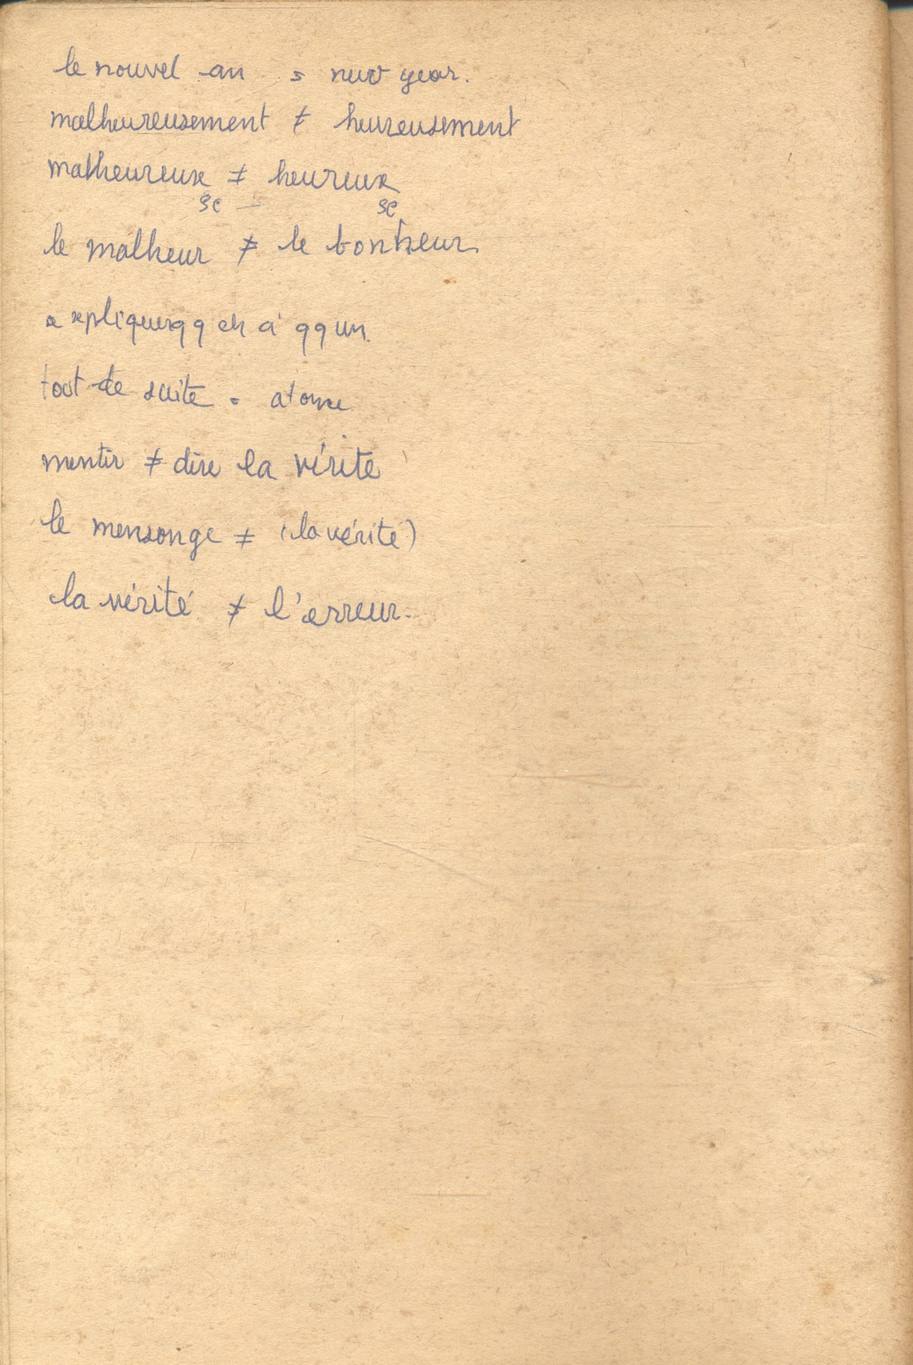 le nouvel an = new year.
malheureusement ≠ heureusement
malheureux ≠ heureux
se se
le malheur ≠ le bonheur
expliquer qq ch à qq un.
tout de suite = at once
mentir ≠ dire la vérité
le mensonge ≠ (la vérité)
la vérité ≠ l'erreur.